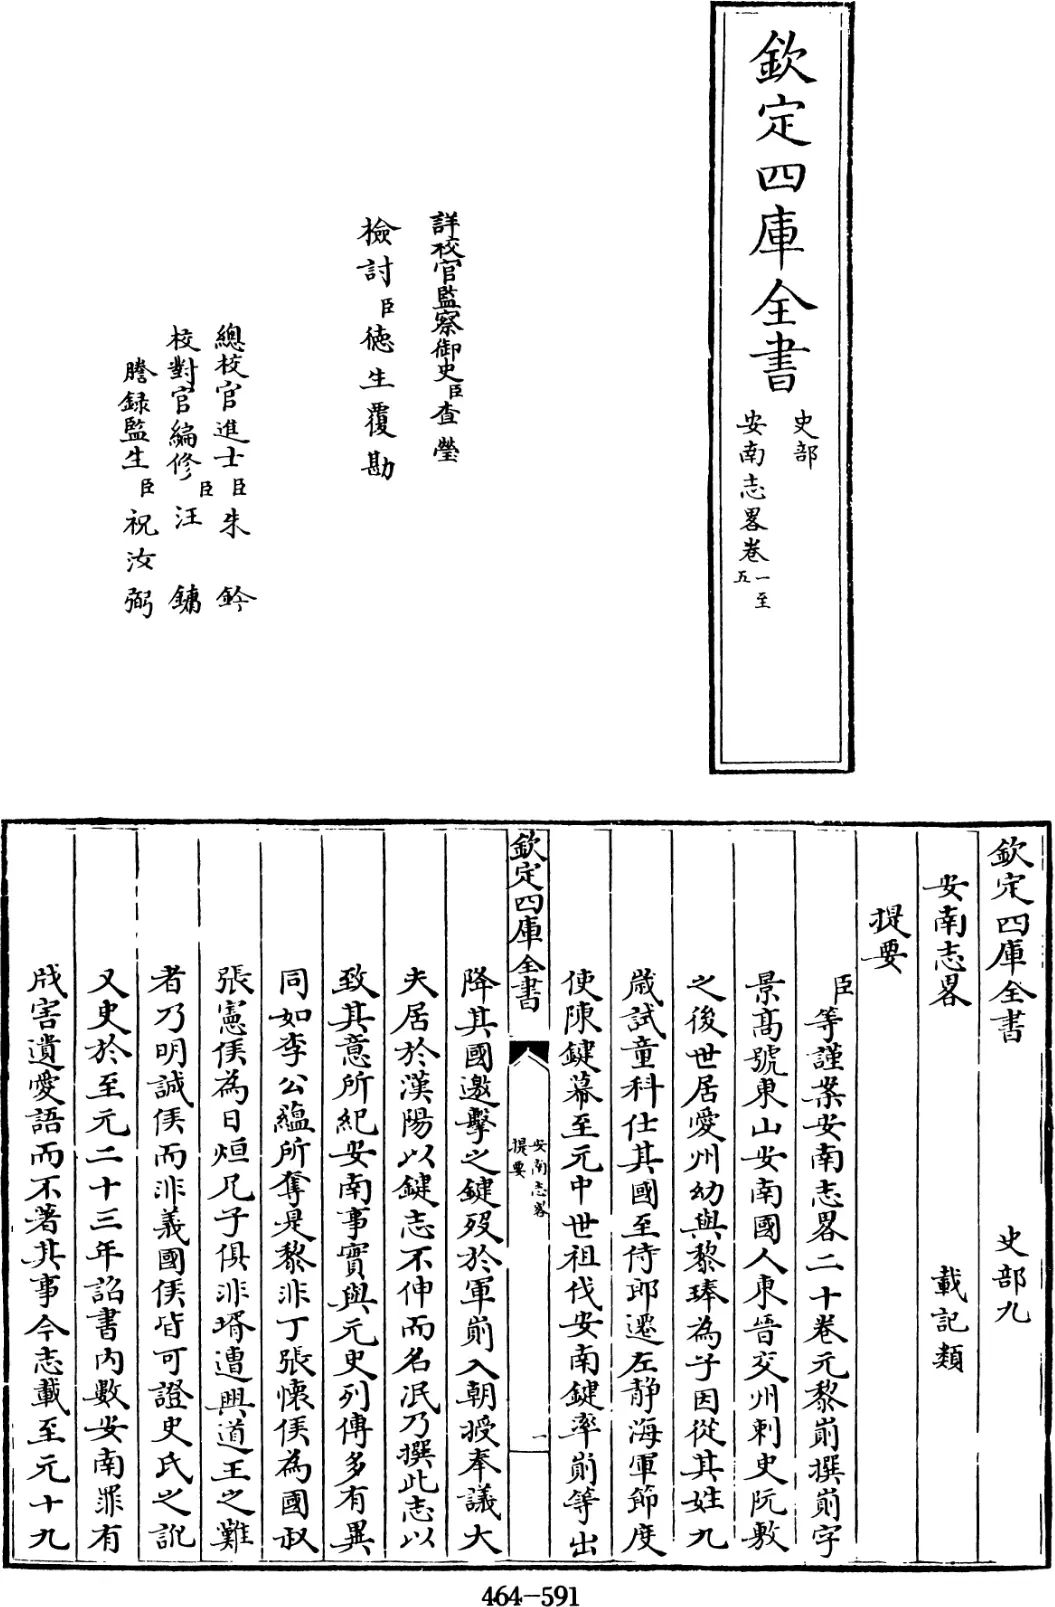 欽定四庫全書
史部
安南志畧卷一至五
詳校官監察御史臣查瑩
檢討臣德生覆勘
總校官進士臣朱鈐
校對官編修臣汪鏞
謄録監生臣祝汝弼
欽定四庫全書 史部九
安南志畧 載記類
提要
臣等謹案安南志畧二十卷元黎崱撰崱字
景高號東山安南國人東晉交州刺史阮敷
之後世居愛州幼與黎琫為子因從其姓九
歲試童科仕其國至侍郎遷左静海軍節度
使陳鍵幕至元中世祖伐安南鍵率崱等出
欽定四庫全書
安南志畧
提要
一
降其國邀擊之鍵殁於軍崱入朝授奉議大
夫居於漢陽以鍵志不伸而名泯乃撰此志以
致其意所紀安南事實與元史列傳多有異
同如李公蘊所奪是黎非丁張懷侯為國叔
張憲侯為日烜凡子俱非壻遭興道王之難
者乃明誠侯而非義國侯皆可證史氏之訛
又史於至元二十三年詔書内數安南罪有
戕害遺愛語而不著其事今志載至元十九
464-591